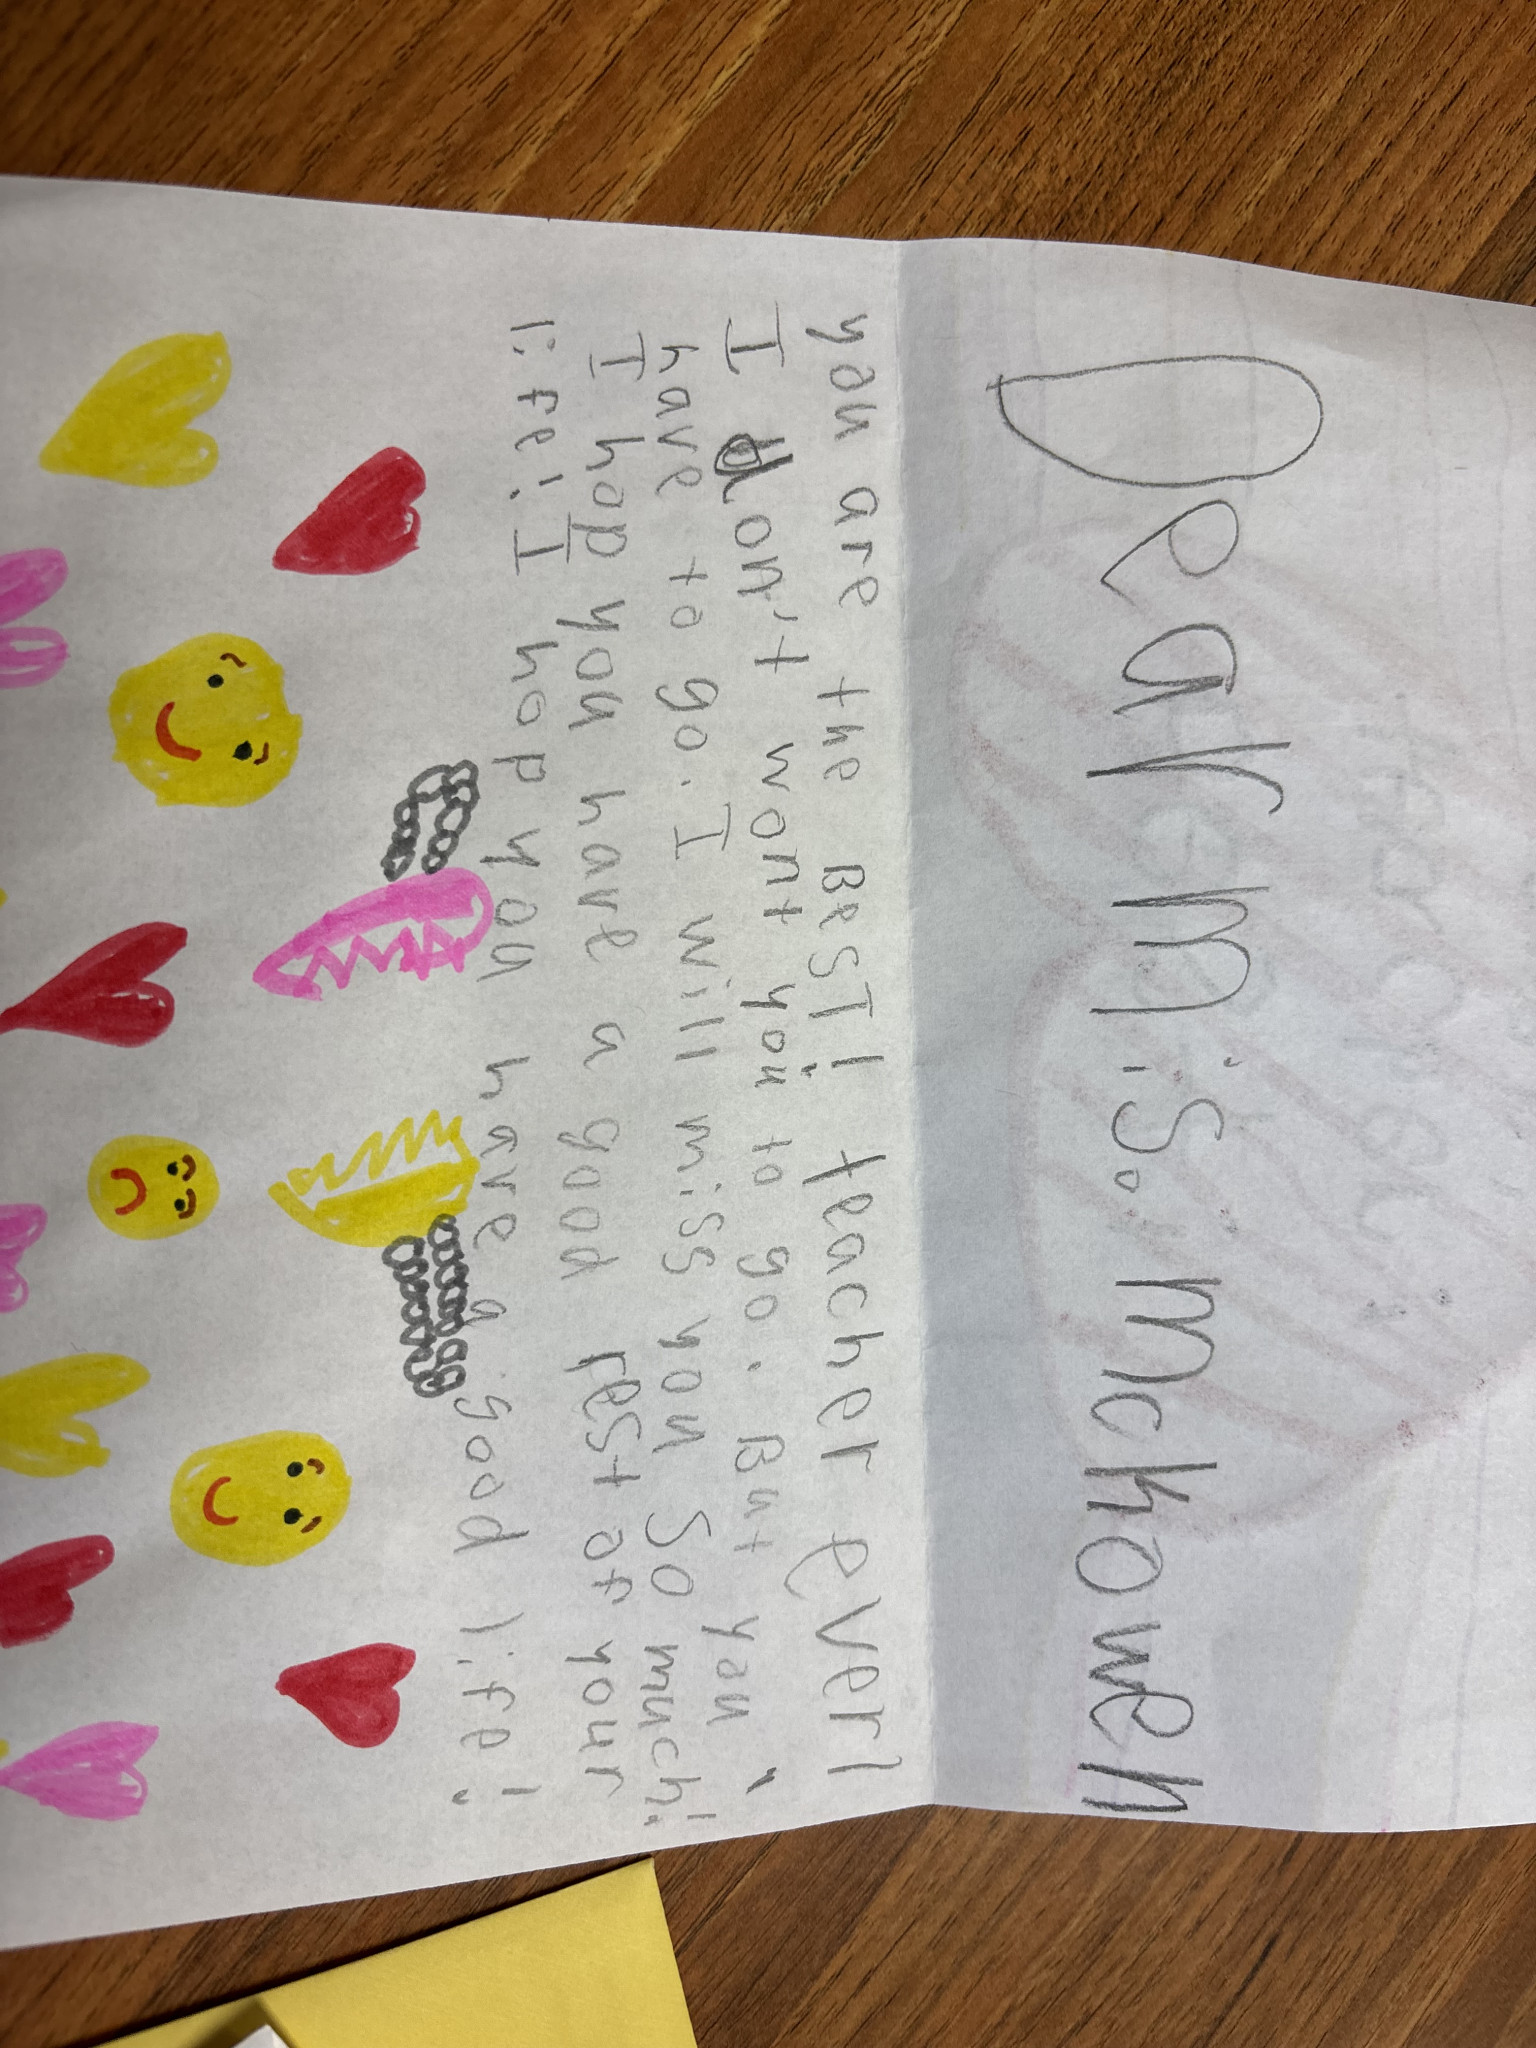 Dear Ms. mchowen
you are the BeST! teacher ever!
I don't wont you to go. But you
have to go. I will miss you SO much!
I hop you have a good rest of your
life! I hop you have a good life!